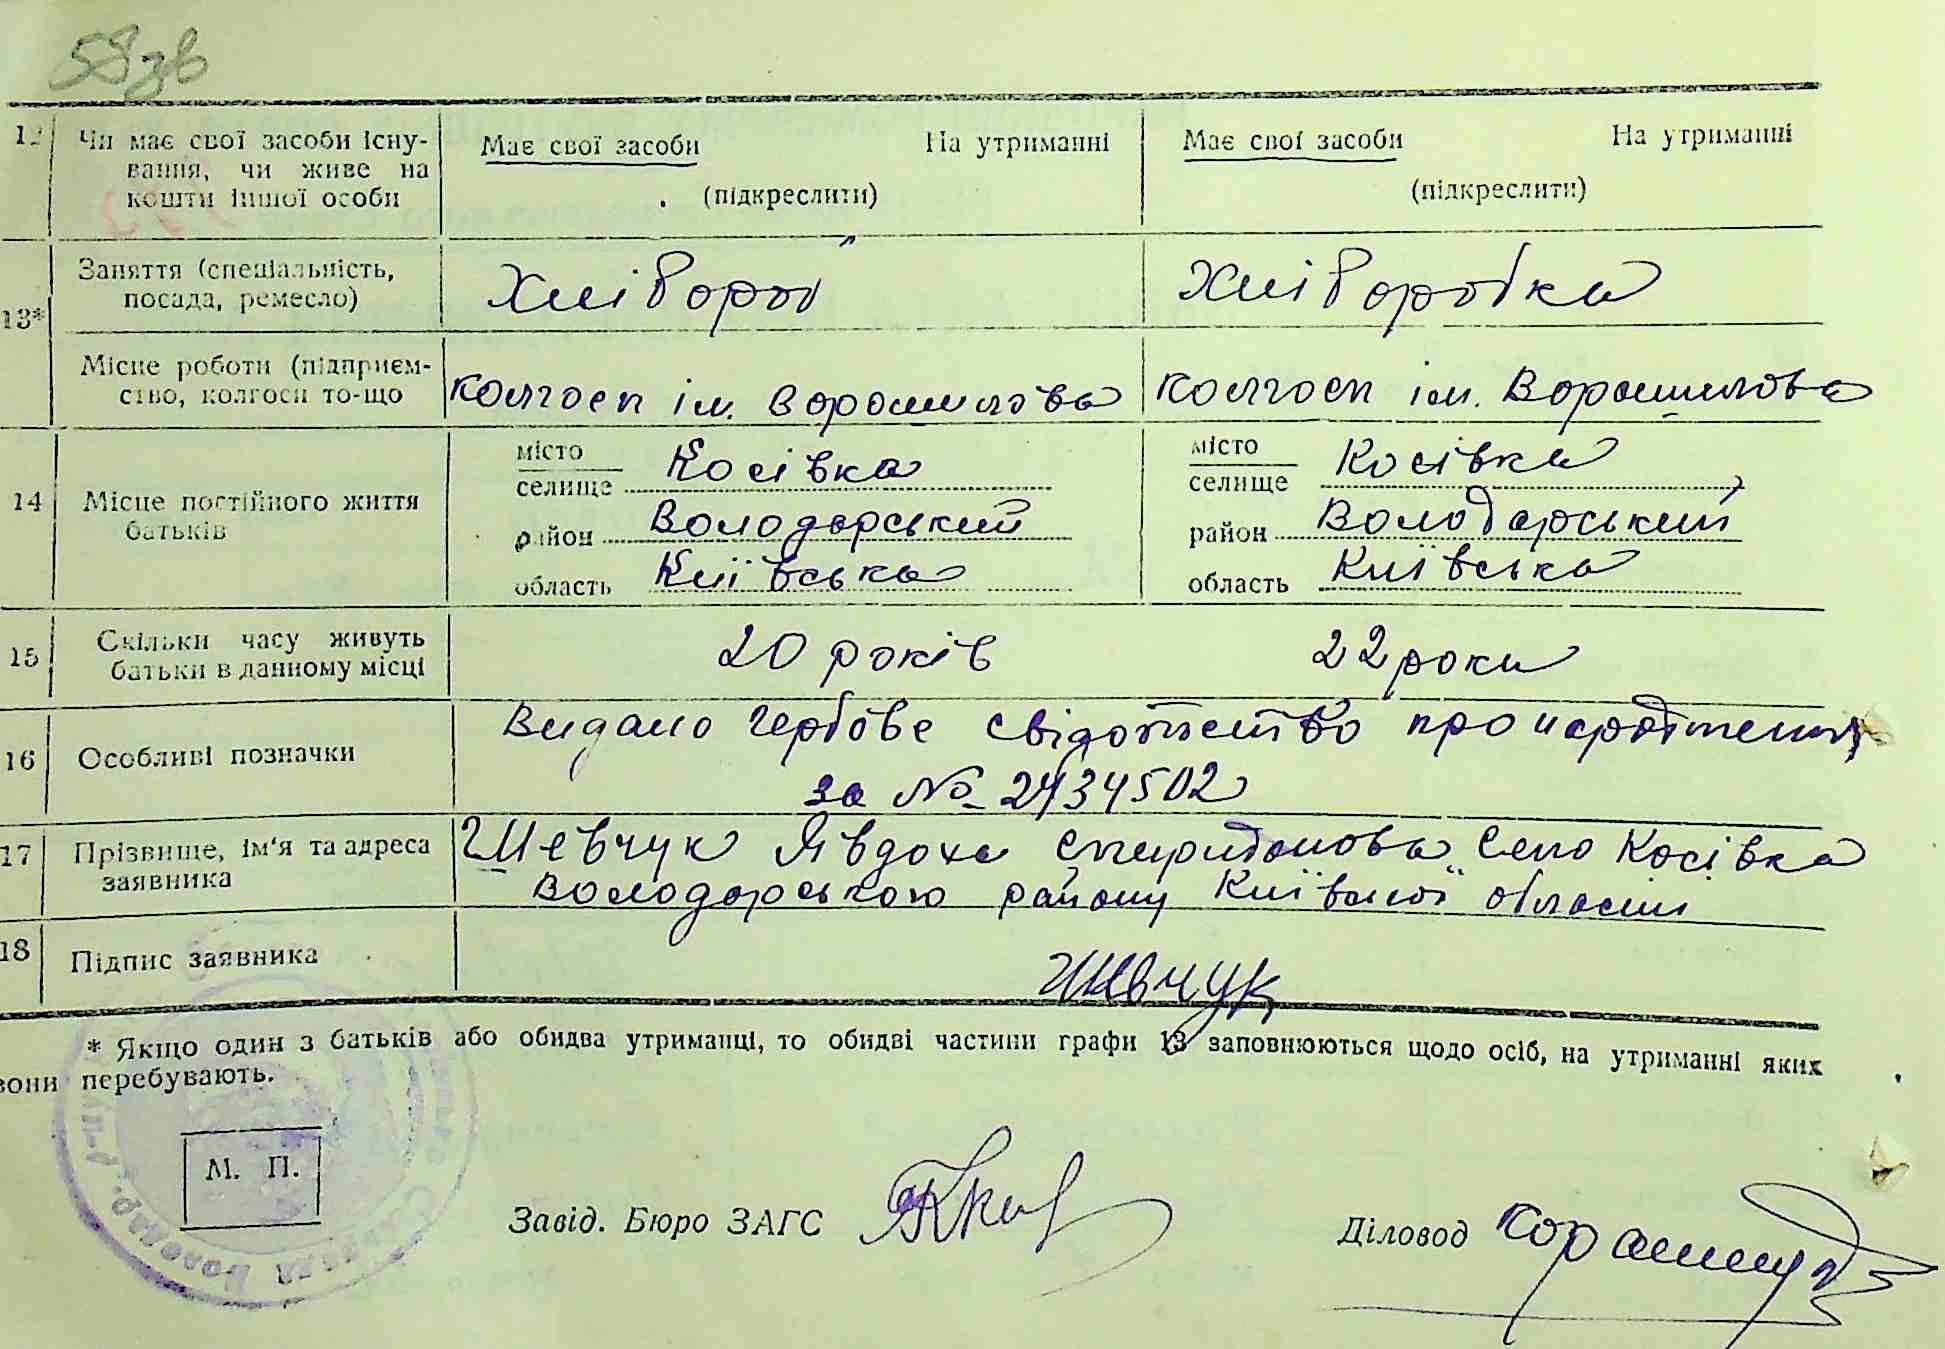 58зв
12 Чи має свої засоби існу- Має свої засоби На утриманні Має свої засоби На утриманні
вання, чи живе на
кошти іншої особи (підкреслити) (підкреслити)
13* Заняття (спеціальність, Хліборой Хліборобка
посада, ремесло)
Місце роботи (підприєм- колгосп ім. Ворошилова колгосп ім. Ворошилова
ство, колгосп то-що
14 Місце постійного життя місто Косівка місто Косівка
батьків селище селище
район Володарський район Володарський
область Київська область Київська
15 Скільки часу живуть 20 років 22 роки
батьки в данному місці
16 Особливі позначки Видано гербове свідотство про народження
за № 2434502
17 Прізвище, ім'я та адреса Шевчук Явдоха Спиридонова Село Косівка
заявника Володарського району Київської області
18 Підпис заявника Шевчук
* Якщо один з батьків або обидва утриманці, то обидві частини графи 13 заповнюються щодо осіб, на утриманні яких
вони перебувають.
М. П.
Завід. Бюро ЗАГС Діловод